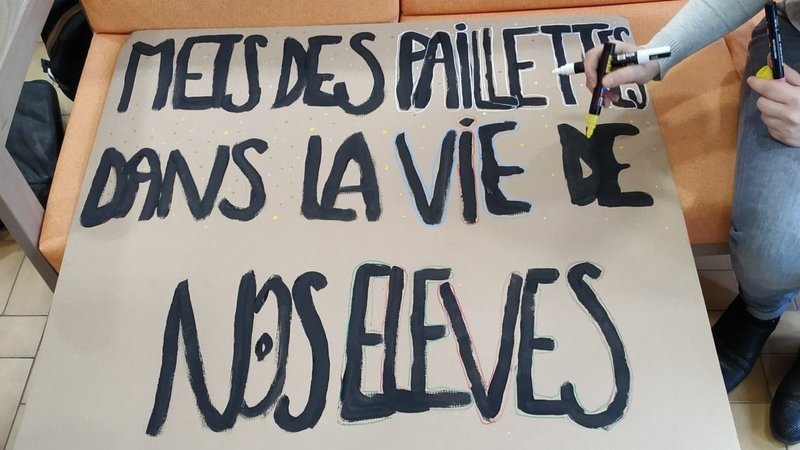 METS DES PAILLETTES
DANS LA VIE DE
NOS ELEVES